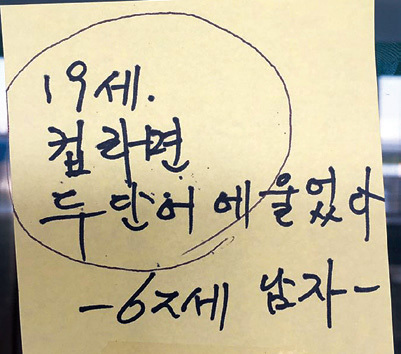 19세.
컵라면
두 단어에 울었다
-62세 남자-